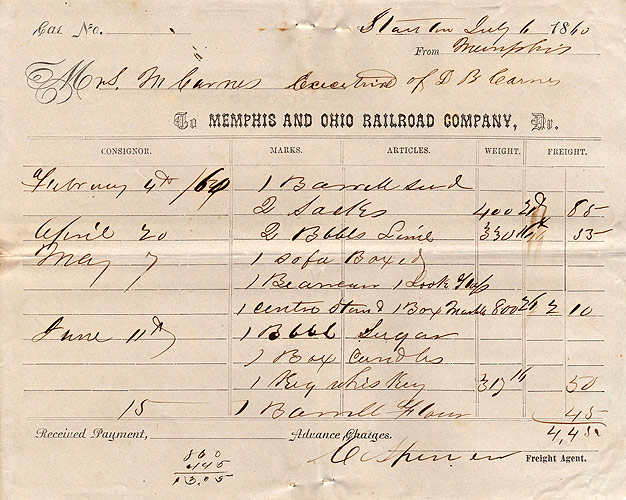 Car No.
Stanton July 6 1860
From Memphis
Mrs. M Carnes Executrix of D B Carnes
To MEMPHIS AND OHIO RAILROAD COMPANY, Dr.
CONSIGNOR. MARKS. ARTICLES. WEIGHT. FREIGHT.
February 4th /60 1 Barrell Seed
2 Sacks 400 20 85
April 20 2 Bbbls Lime 330 16 55
May 7 1 Sofa Boxed
1 Beaureau 1 Look Glass
1 centre Stand 1 Box Marble 800 26 2 10
June 11th 1 Bbbl Sugar
1 Box Candles
1 Keg Whiskey 317 16 50
15 1 Barrell Flour 45
Received Payment, Advance Charges. 4,45
C Spencer Freight Agent.
860
445
13.05